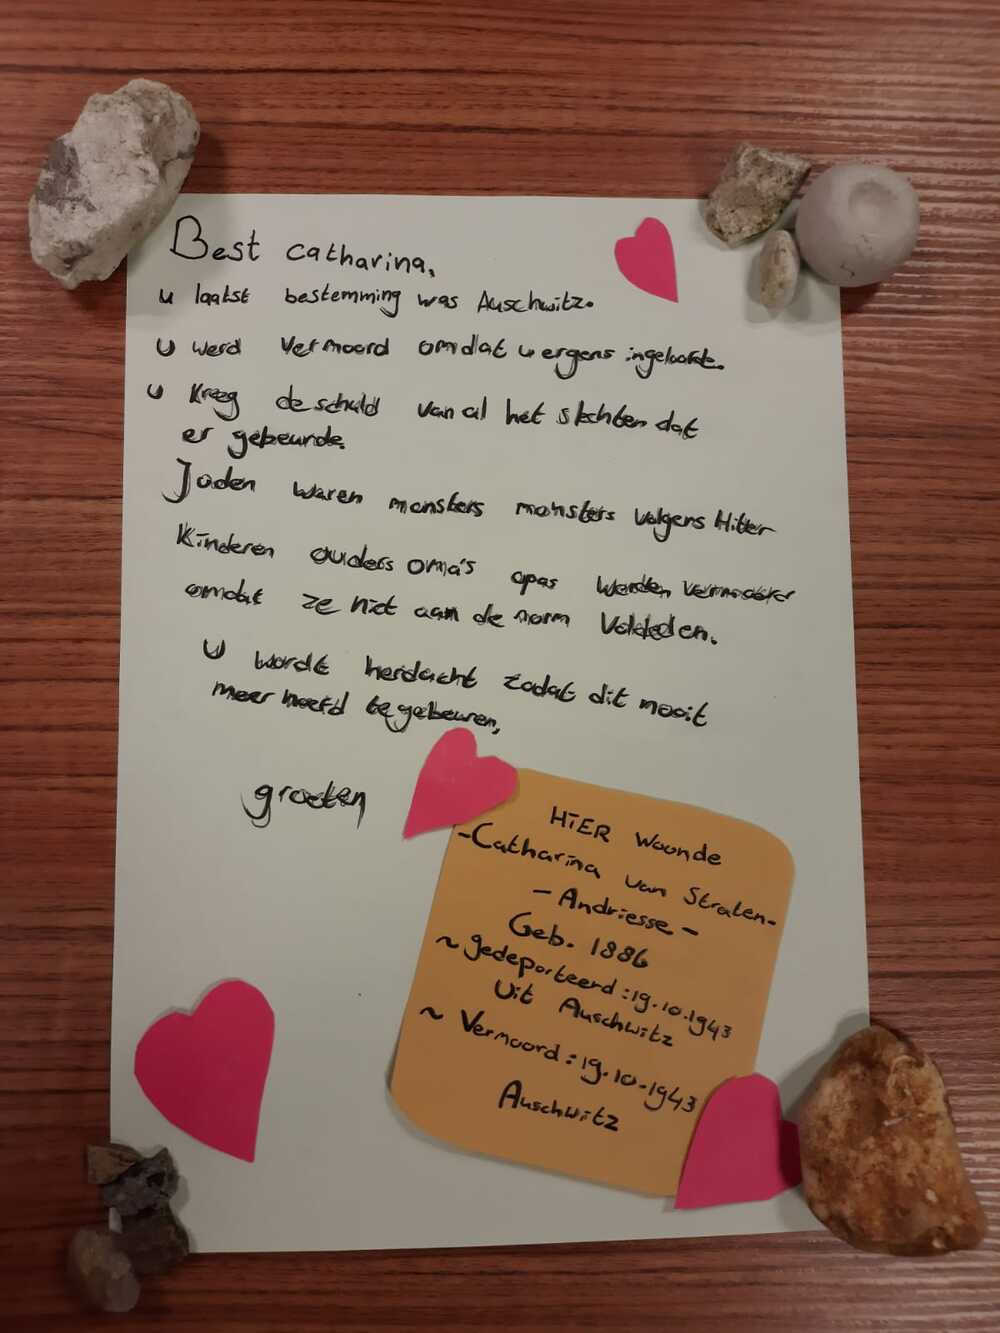 Best Catharina,
u laatst bestemming was Auschwitz.
u werd vermoord omdat u ergens ingeloofde.
u kreeg de schuld van al het slechten dat
er gebeurde.
Joden waren monsters monsters volgens Hitler
Kinderen ouders oma's opas werden vermoord
omdat ze niet aan de norm voldeden.
U wordt herdacht zodat dit nooit
meer hoefd te gebeuren,
groeten
HIER Woonde
-Catharina van Straten-
-Andriesse-
Geb. 1886
~ gedeporteerd: 19.10.1943
Uit Auschwitz
~ Vermoord: 19.10.1943
Auschwitz